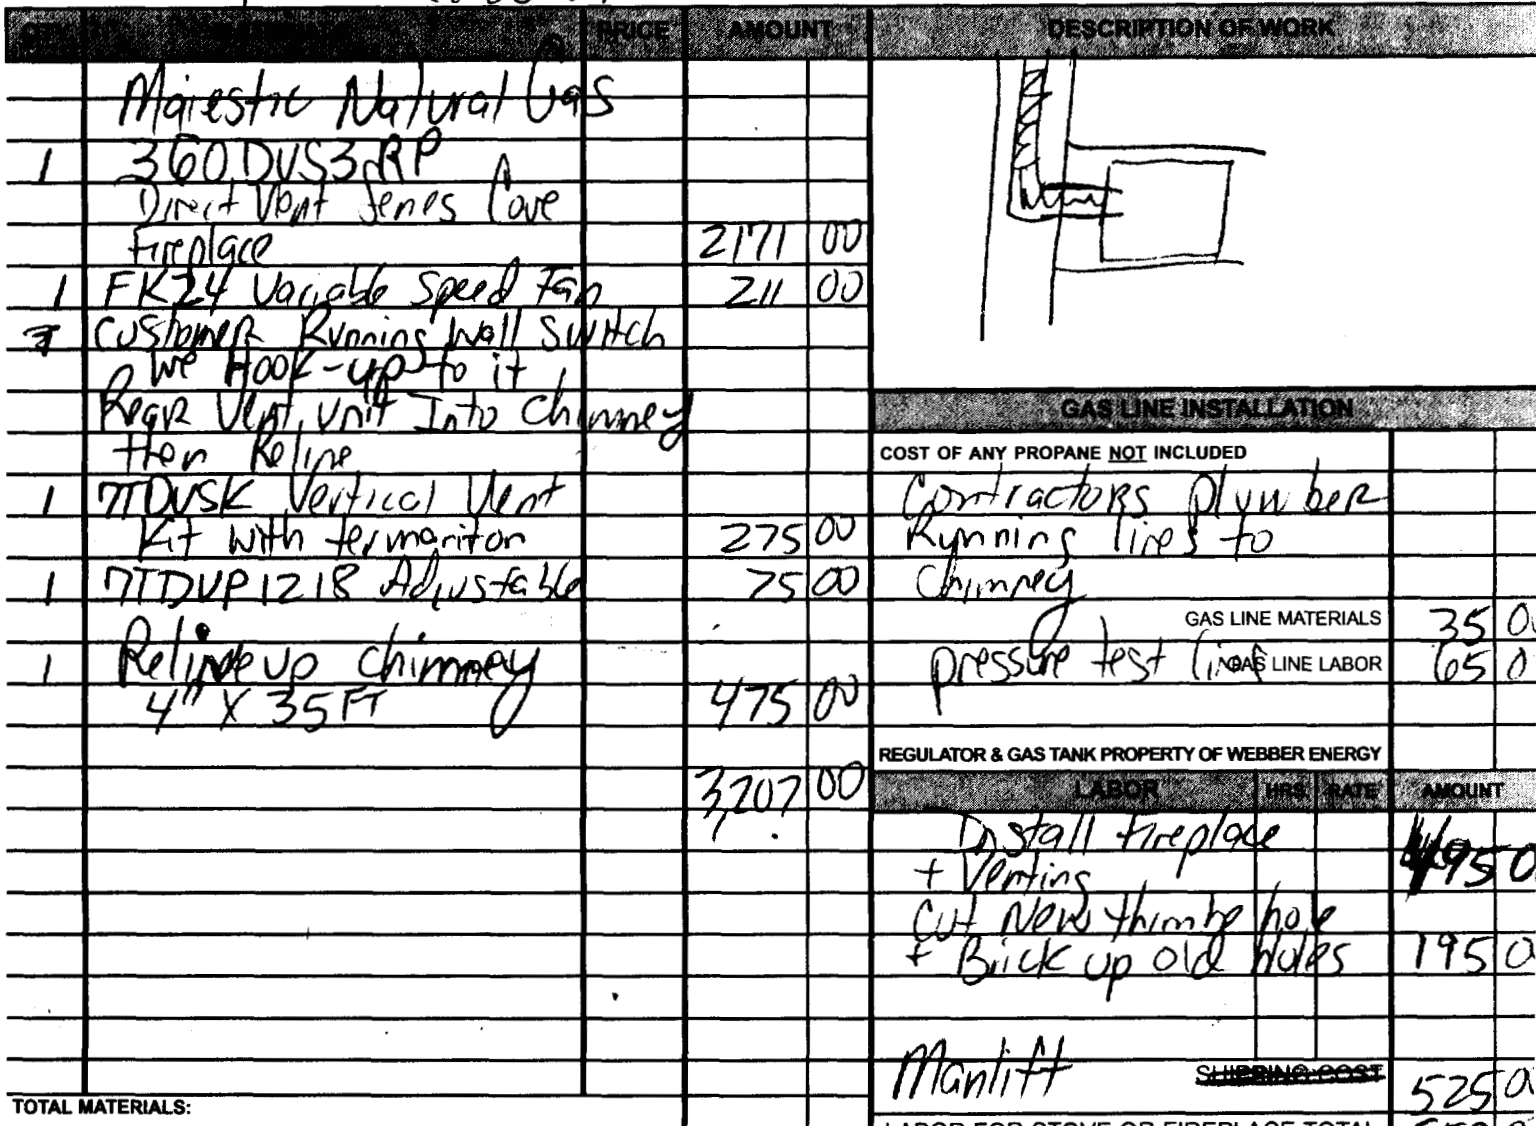 QTY. PRICE AMOUNT
Majestic Natural Gas
1 360DVS3 RP
Direct Vent Series Cove
Fireplace 2171 00
1 FK24 Variable Speed Fan 211 00
Customer Running Wall Switch
We Hook-up to it
Rear Vent unit Into Chimney
then Reline
1 7TDVSK Vertical Vent
Kit with termoriton 275 00
1 7TDVP1218 Adjustable 75 00
1 Reline up chimney
4" X 35 FT 475 00
3,207 00
TOTAL MATERIALS:
DESCRIPTION OF WORK
GAS LINE INSTALLATION
COST OF ANY PROPANE NOT INCLUDED
Contractors plumber
Running lines to
Chimney
GAS LINE MATERIALS 35 0
pressure test line GAS LINE LABOR 65 0
REGULATOR & GAS TANK PROPERTY OF WEBBER ENERGY
LABOR HRS. RATE AMOUNT
Install fireplace
+ Venting 495 0
Cut New thimbe hole
+ Brick up old holes 195 0
Manlift SHIPPING COST 525 0
LABOR FOR STOVE OR FIREPLACE TOTAL